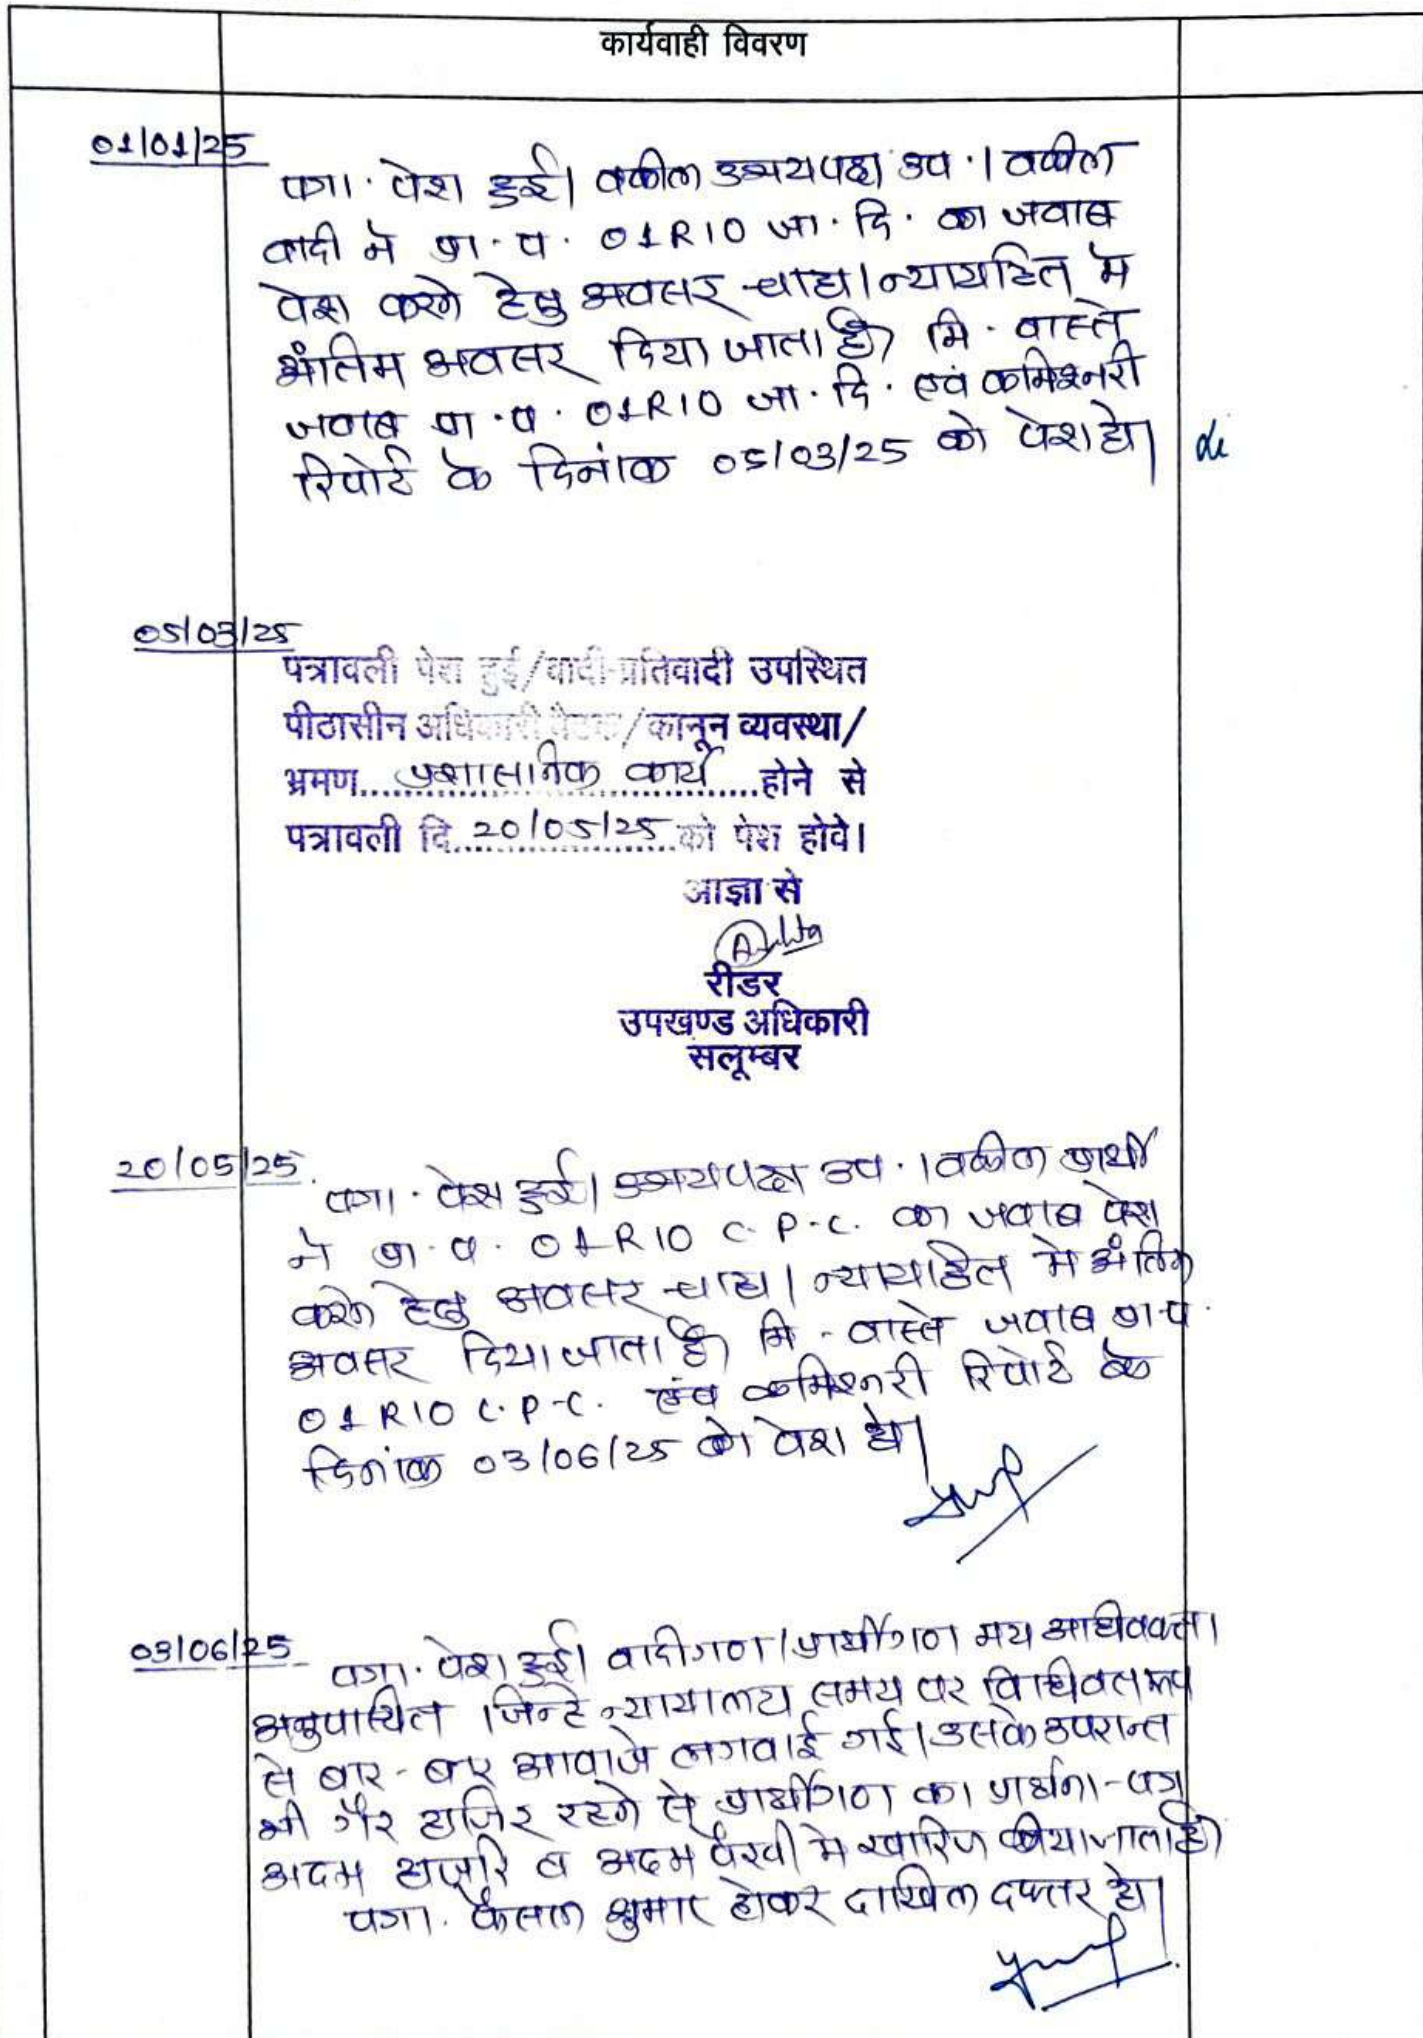 कार्यवाही विवरण
01/01/25
पत्रा. पेश हुई। वकील उभयपक्ष उप.। वकील
वादी ने प्रा.प. 01R10 जा.दि. का जवाब
पेश करने हेतु अवसर चाहा। न्यायहित मे
अंतिम अवसर दिया जाता है। मि. वास्ते
जवाब प्रा.प. 01R10 जा.दि. एवं कमिश्नरी
रिपोर्ट के दिनांक 05/03/25 को पेश हो।
05/03/25
पत्रावली पेश हुई/वादी-प्रतिवादी उपस्थित
पीठासीन अधिकारी बैठक/कानून व्यवस्था/
भ्रमण....प्रशासनिक कार्य....होने से
पत्रावली दि. 20/05/25 को पेश होवे।
आज्ञा से
रीडर
उपखण्ड अधिकारी
सलूम्बर
20/05/25
पत्रा. पेश हुई। उभयपक्ष उप.। वकील प्रार्थी
ने प्रा.प. 01R10 C.P.C. का जवाब पेश
करने हेतु अवसर चाहा। न्यायहित मे अंतिम
अवसर दिया जाता है। मि. वास्ते जवाब प्रा.प.
01R10 C.P.C. एंव कमिश्नरी रिपोर्ट के
दिनांक 03/06/25 को पेश हो।
03/06/25
पत्रा. पेश हुई। वादीगण/प्रार्थीगण मय अधिवक्ता
अनुपस्थित। जिन्हे न्यायालय समय पर विधिवत रूप
से बार-बार आवाजे लगवाई गई। उसके उपरान्त
भी गैर हाजिर रहने से प्रार्थीगण का प्रार्थना-पत्र
अदम हाजरि व अदम पैरवी मे खारिज कीया जाता है।
पत्रा. फैसल शुमार होकर दाखिल दफ्तर हो।